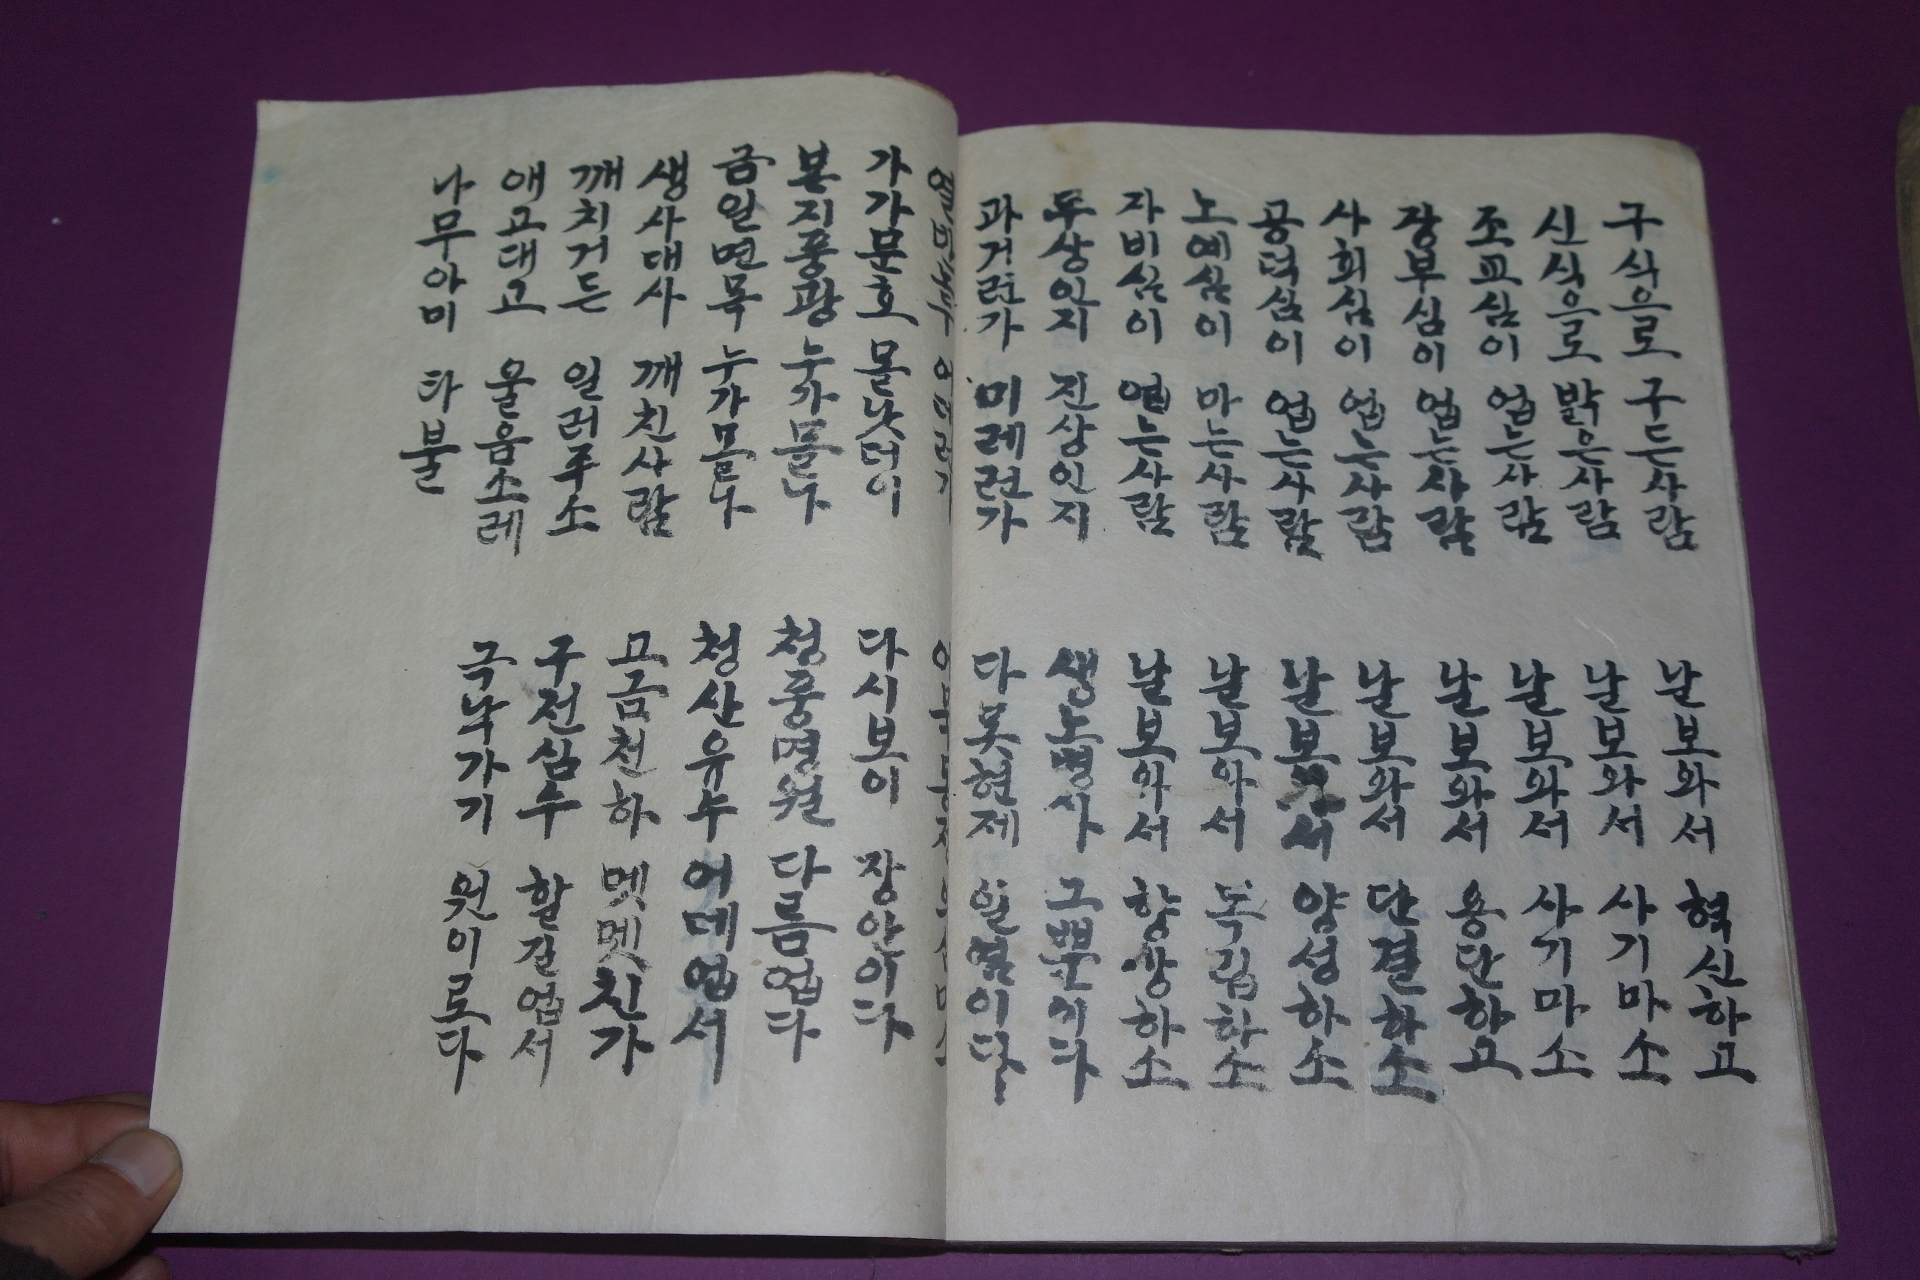 구식으로 구든사람 날보와서 혁신하고
신식으로 밝은사람 날보와서 사기마소
조교심이 업는사람 날보와서 사기마소
장부심이 업는사람 날보와서 용단하고
사회심이 업는사람 날보와서 단결하소
공덕심이 업는사람 날보와서 양성하소
노예심이 마는사람 날보와서 독립하소
자비심이 업는사람 날보와서 향상하소
두상인지 진상인지 생노병사 그뿐이다
과거런가 미레런가 다못현제 일염이다
가가문호 몰낫더이 다시보이 장안이다
본지풍광 누가몰나 청풍명월 다름업다
금일면목 누가몰나 청산유수 어데업서
생사대사 깨친사람 고금천하 멧멧친가
깨치거든 일러주소 구전심수 할길업서
애고대고 울음소레 극낙가기 원이로다
나무아미 타불